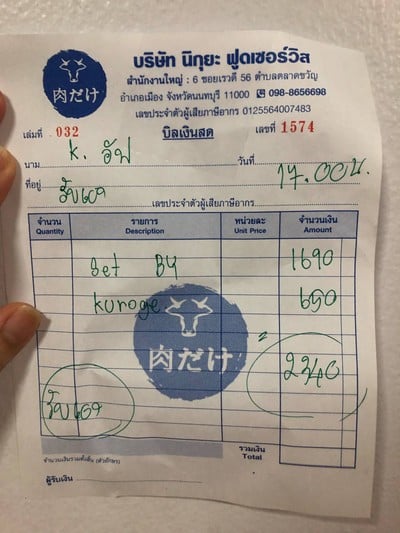 肉だけ
บริษัท นิกุยะ ฟูดเซอร์วิส
สำนักงานใหญ่ : 6 ซอยเรวดี 56 ตำบลตลาดขวัญ
อำเภอเมือง จังหวัดนนทบุรี 11000 098-8656698
เลขประจำตัวผู้เสียภาษีอากร 0125564007483
เล่มที่ 032 บิลเงินสด เลขที่ 1574
นาม K. อัฟ วันที่ 17.00น.
ที่อยู่ รับเอง
เลขประจำตัวผู้เสียภาษีอากร
จำนวน รายการ หน่วยละ จำนวนเงิน
Quantity Description Unit Price Amount
Set B4 1690
kuroge 650
肉だけ
= 2340
รับเอง
รวมเงิน
Total
จำนวนเงินรวมทั้งสิ้น (ตัวอักษร)
ผู้รับเงิน